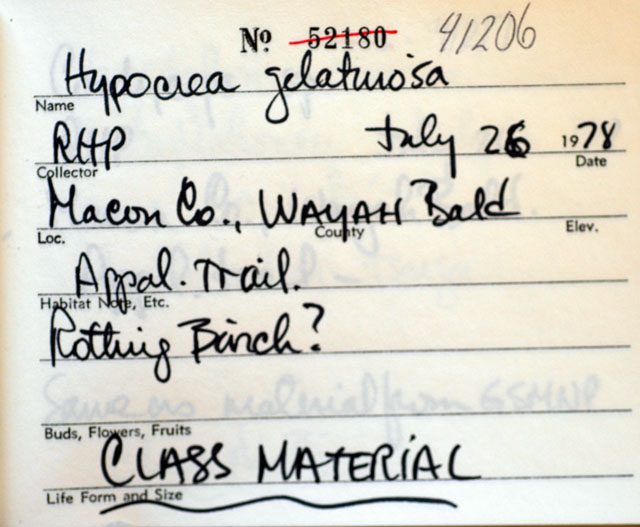 Nº 52180 41206
Hypocrea gelatinosa
Name
RHP July 26 1978
Collector Date
Macon Co., WAYAH Bald
Loc. County Elev.
Appal. Trail.
Habitat Note, Etc.
Rotting Birch?
Same as material from GSMNP
Buds, Flowers, Fruits
CLASS MATERIAL
Life Form and Size